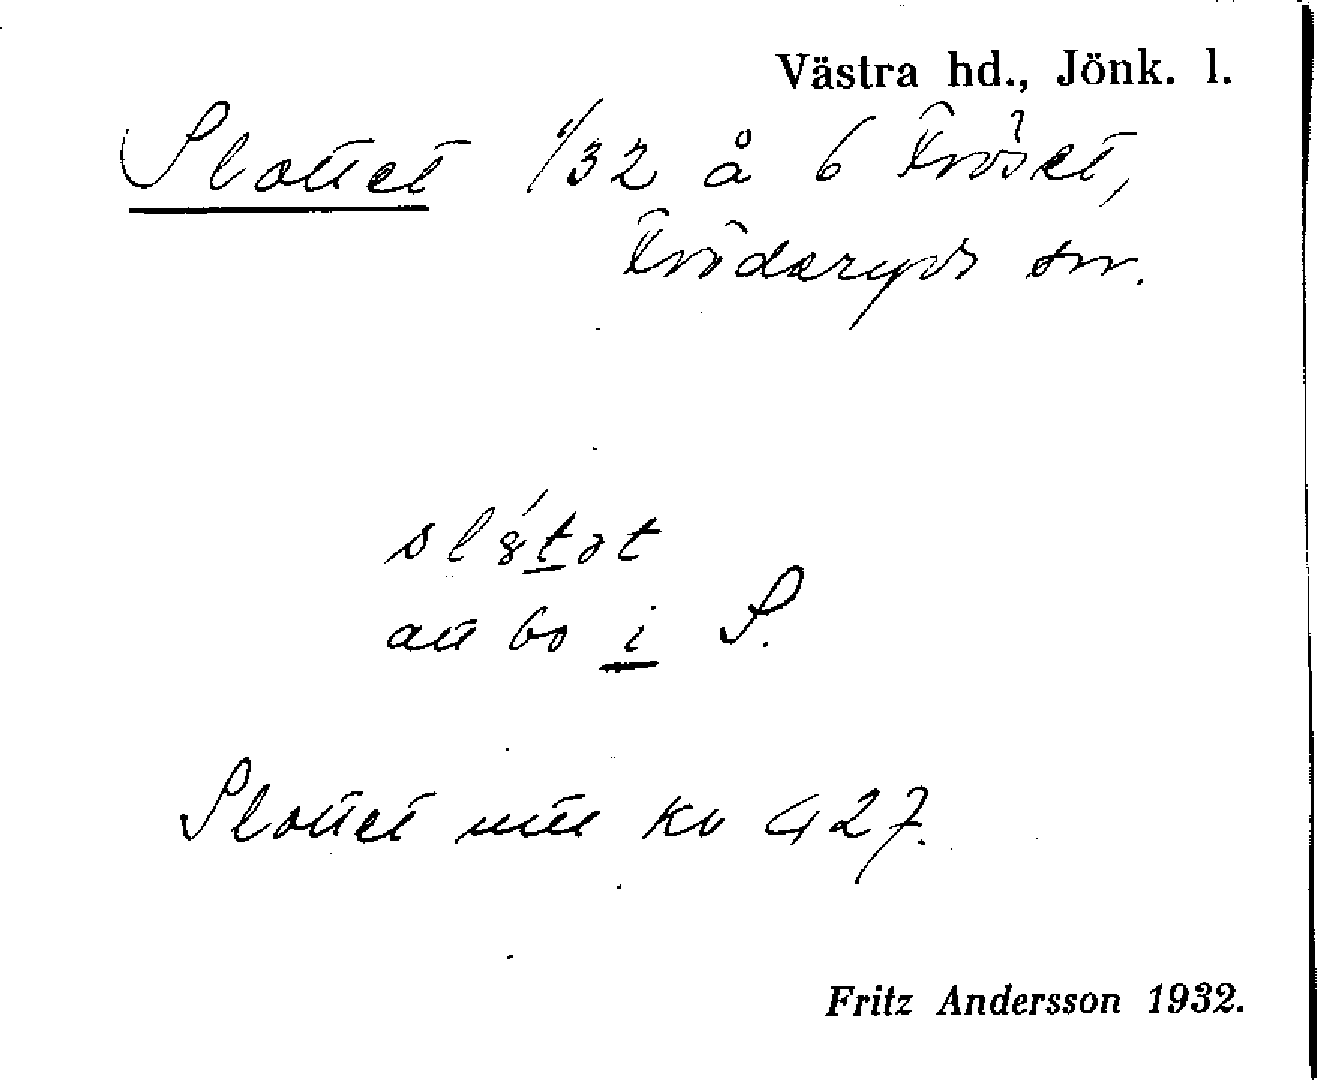 Västra hd., Jönk. l.
Slottet 1/32 å 6 Fröset,
Fröderyds sn.
sl8́t̲ət
att bo i S.
Slottet utu Kv 427.
Fritz Andersson 1932.